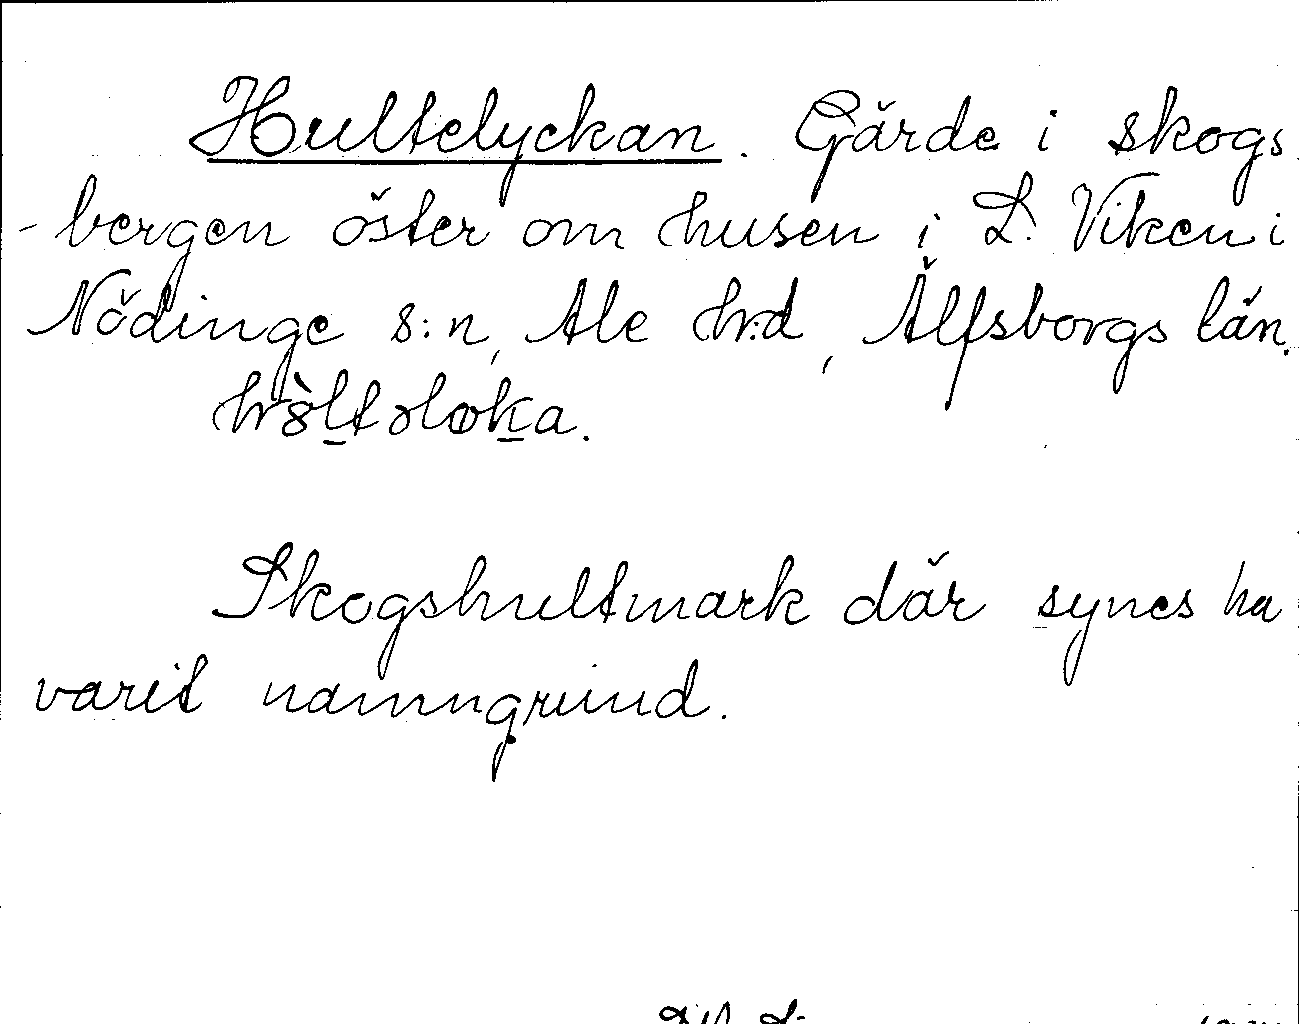 Hultelyckan. Gärde i skogs
-bergen öster om husen i L. Viken i
Nödinge s:n, Ale h:d, Älfsborgs län.
Skogshultmark där synes ha
varit namngrund.